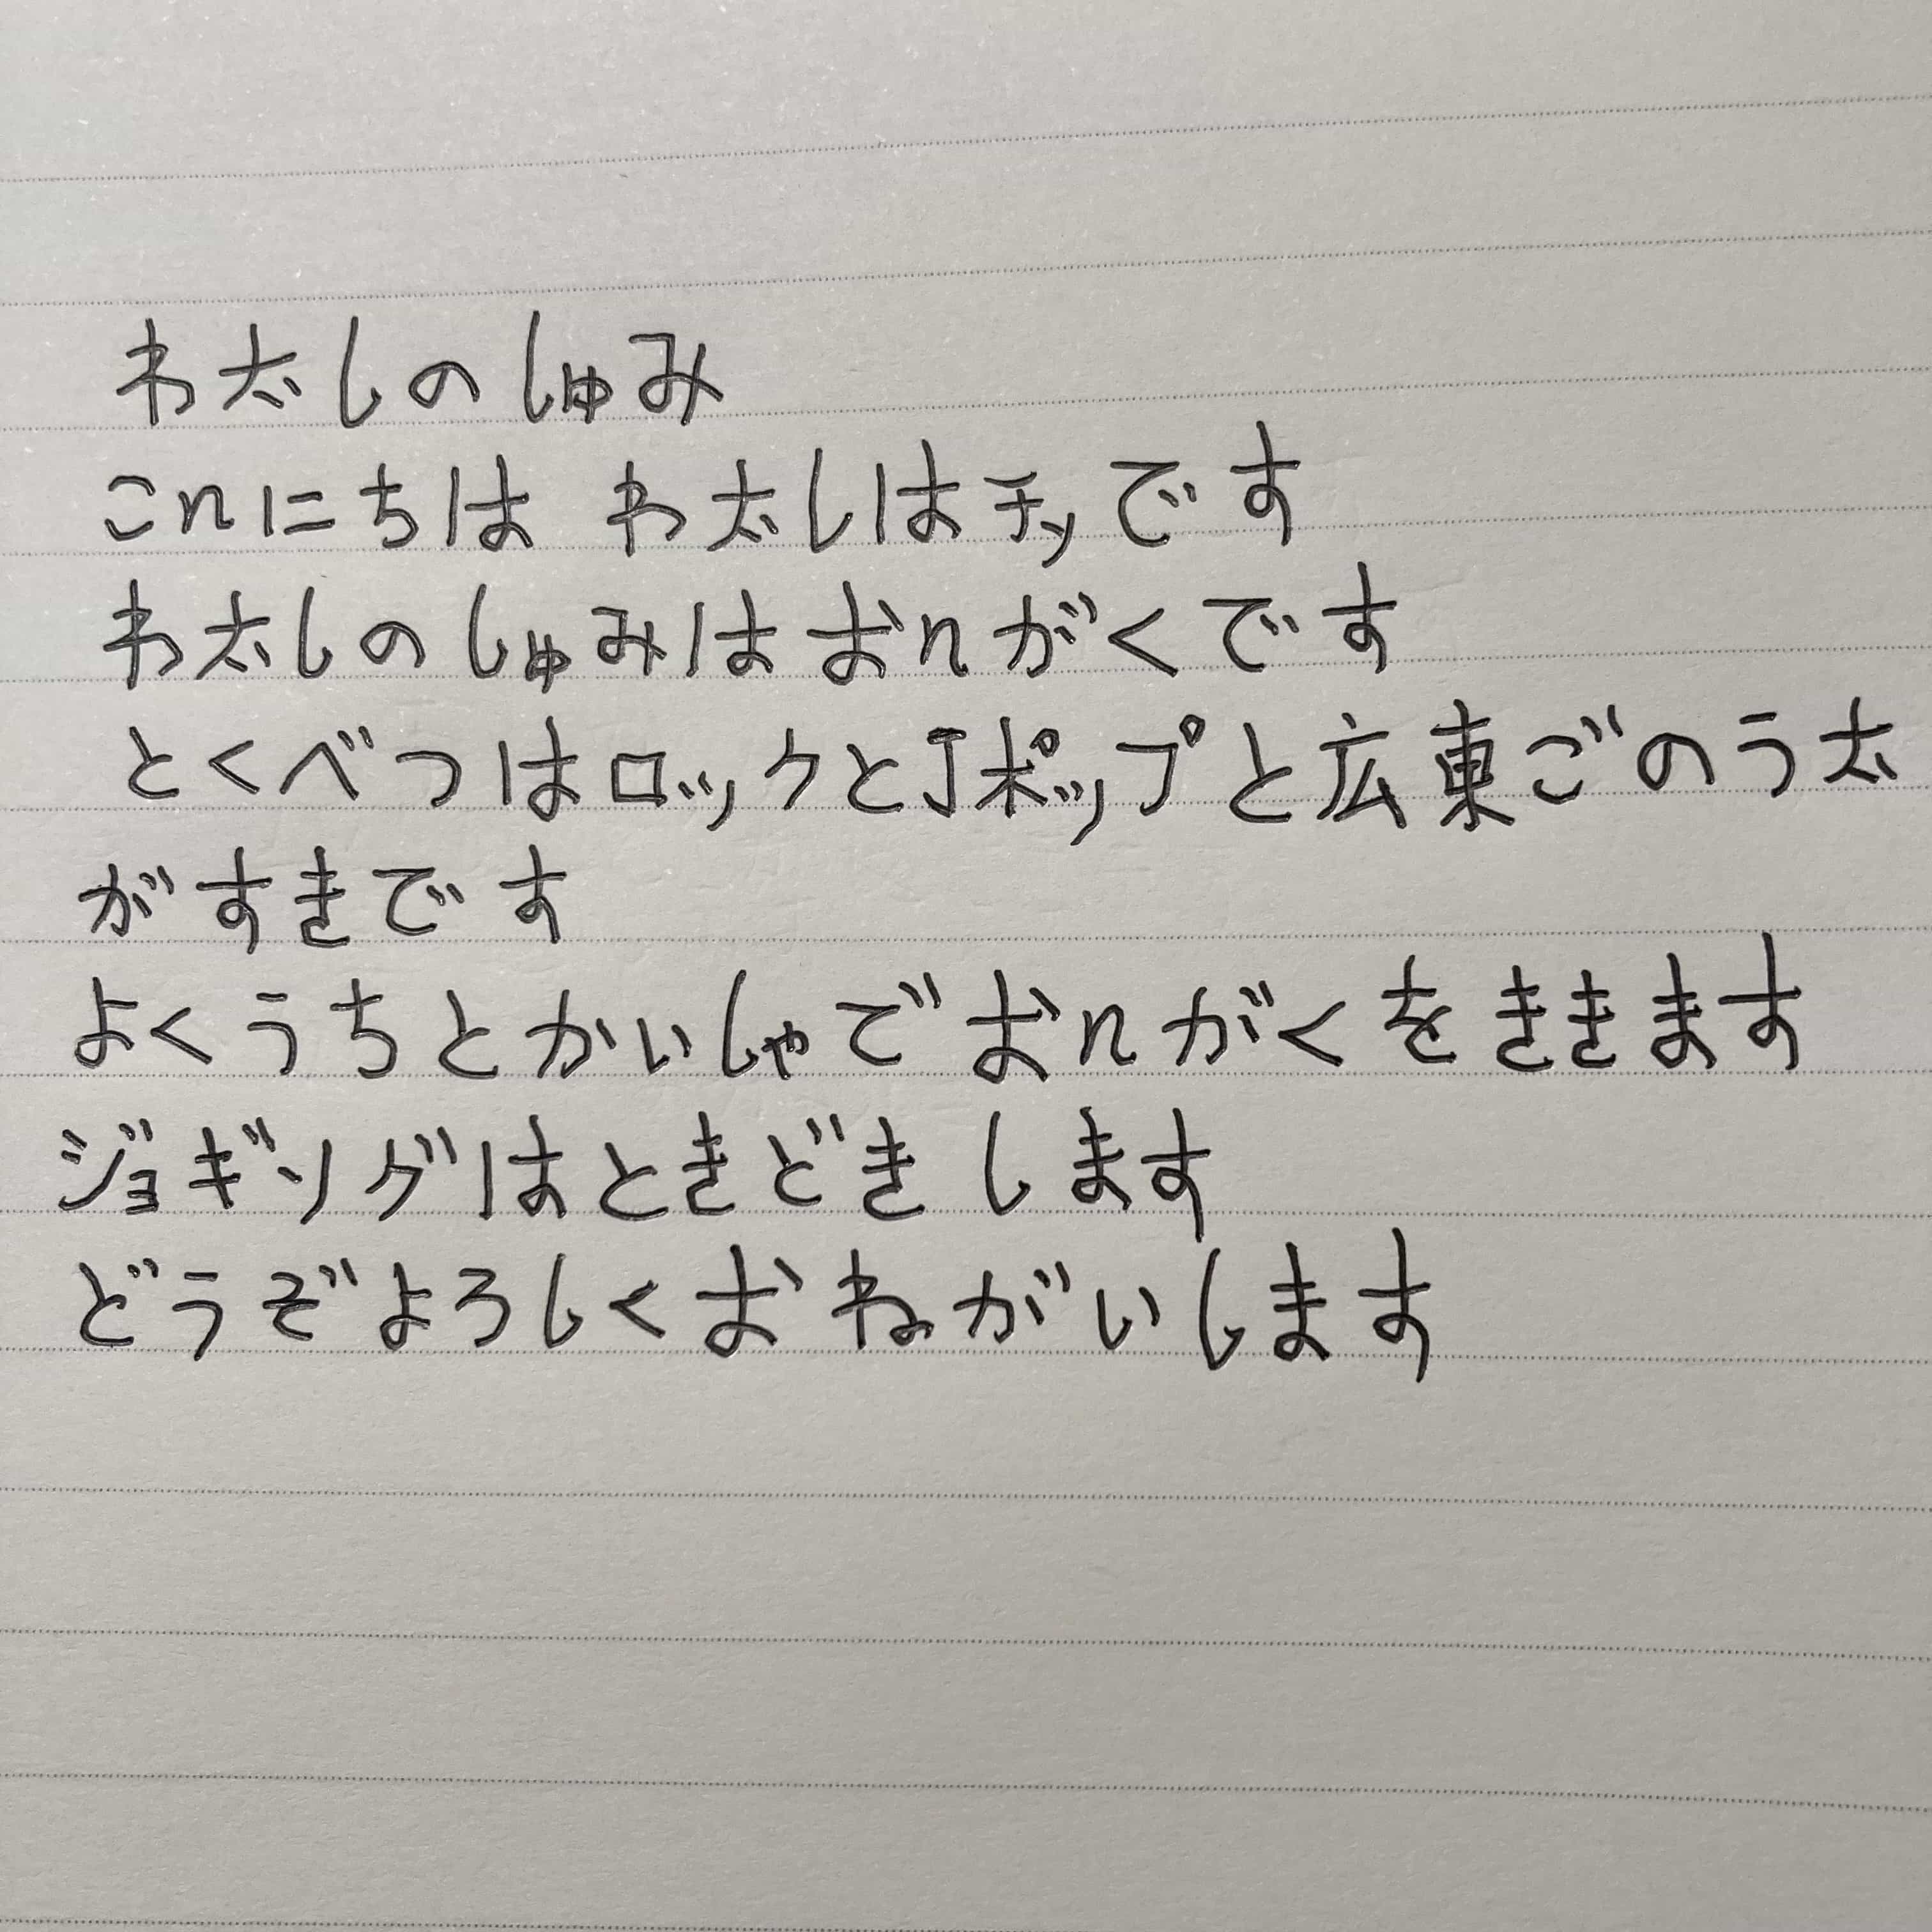 わたしのしゅみ
こんにちは わたしはチンです
わたしのしゅみはおんがくです
とくべつはロックとJポップと広東ごのうた
がすきです
よくうちとかいしゃでおんがくをききます
ジョギングはときどきします
どうぞよろしくおねがいします